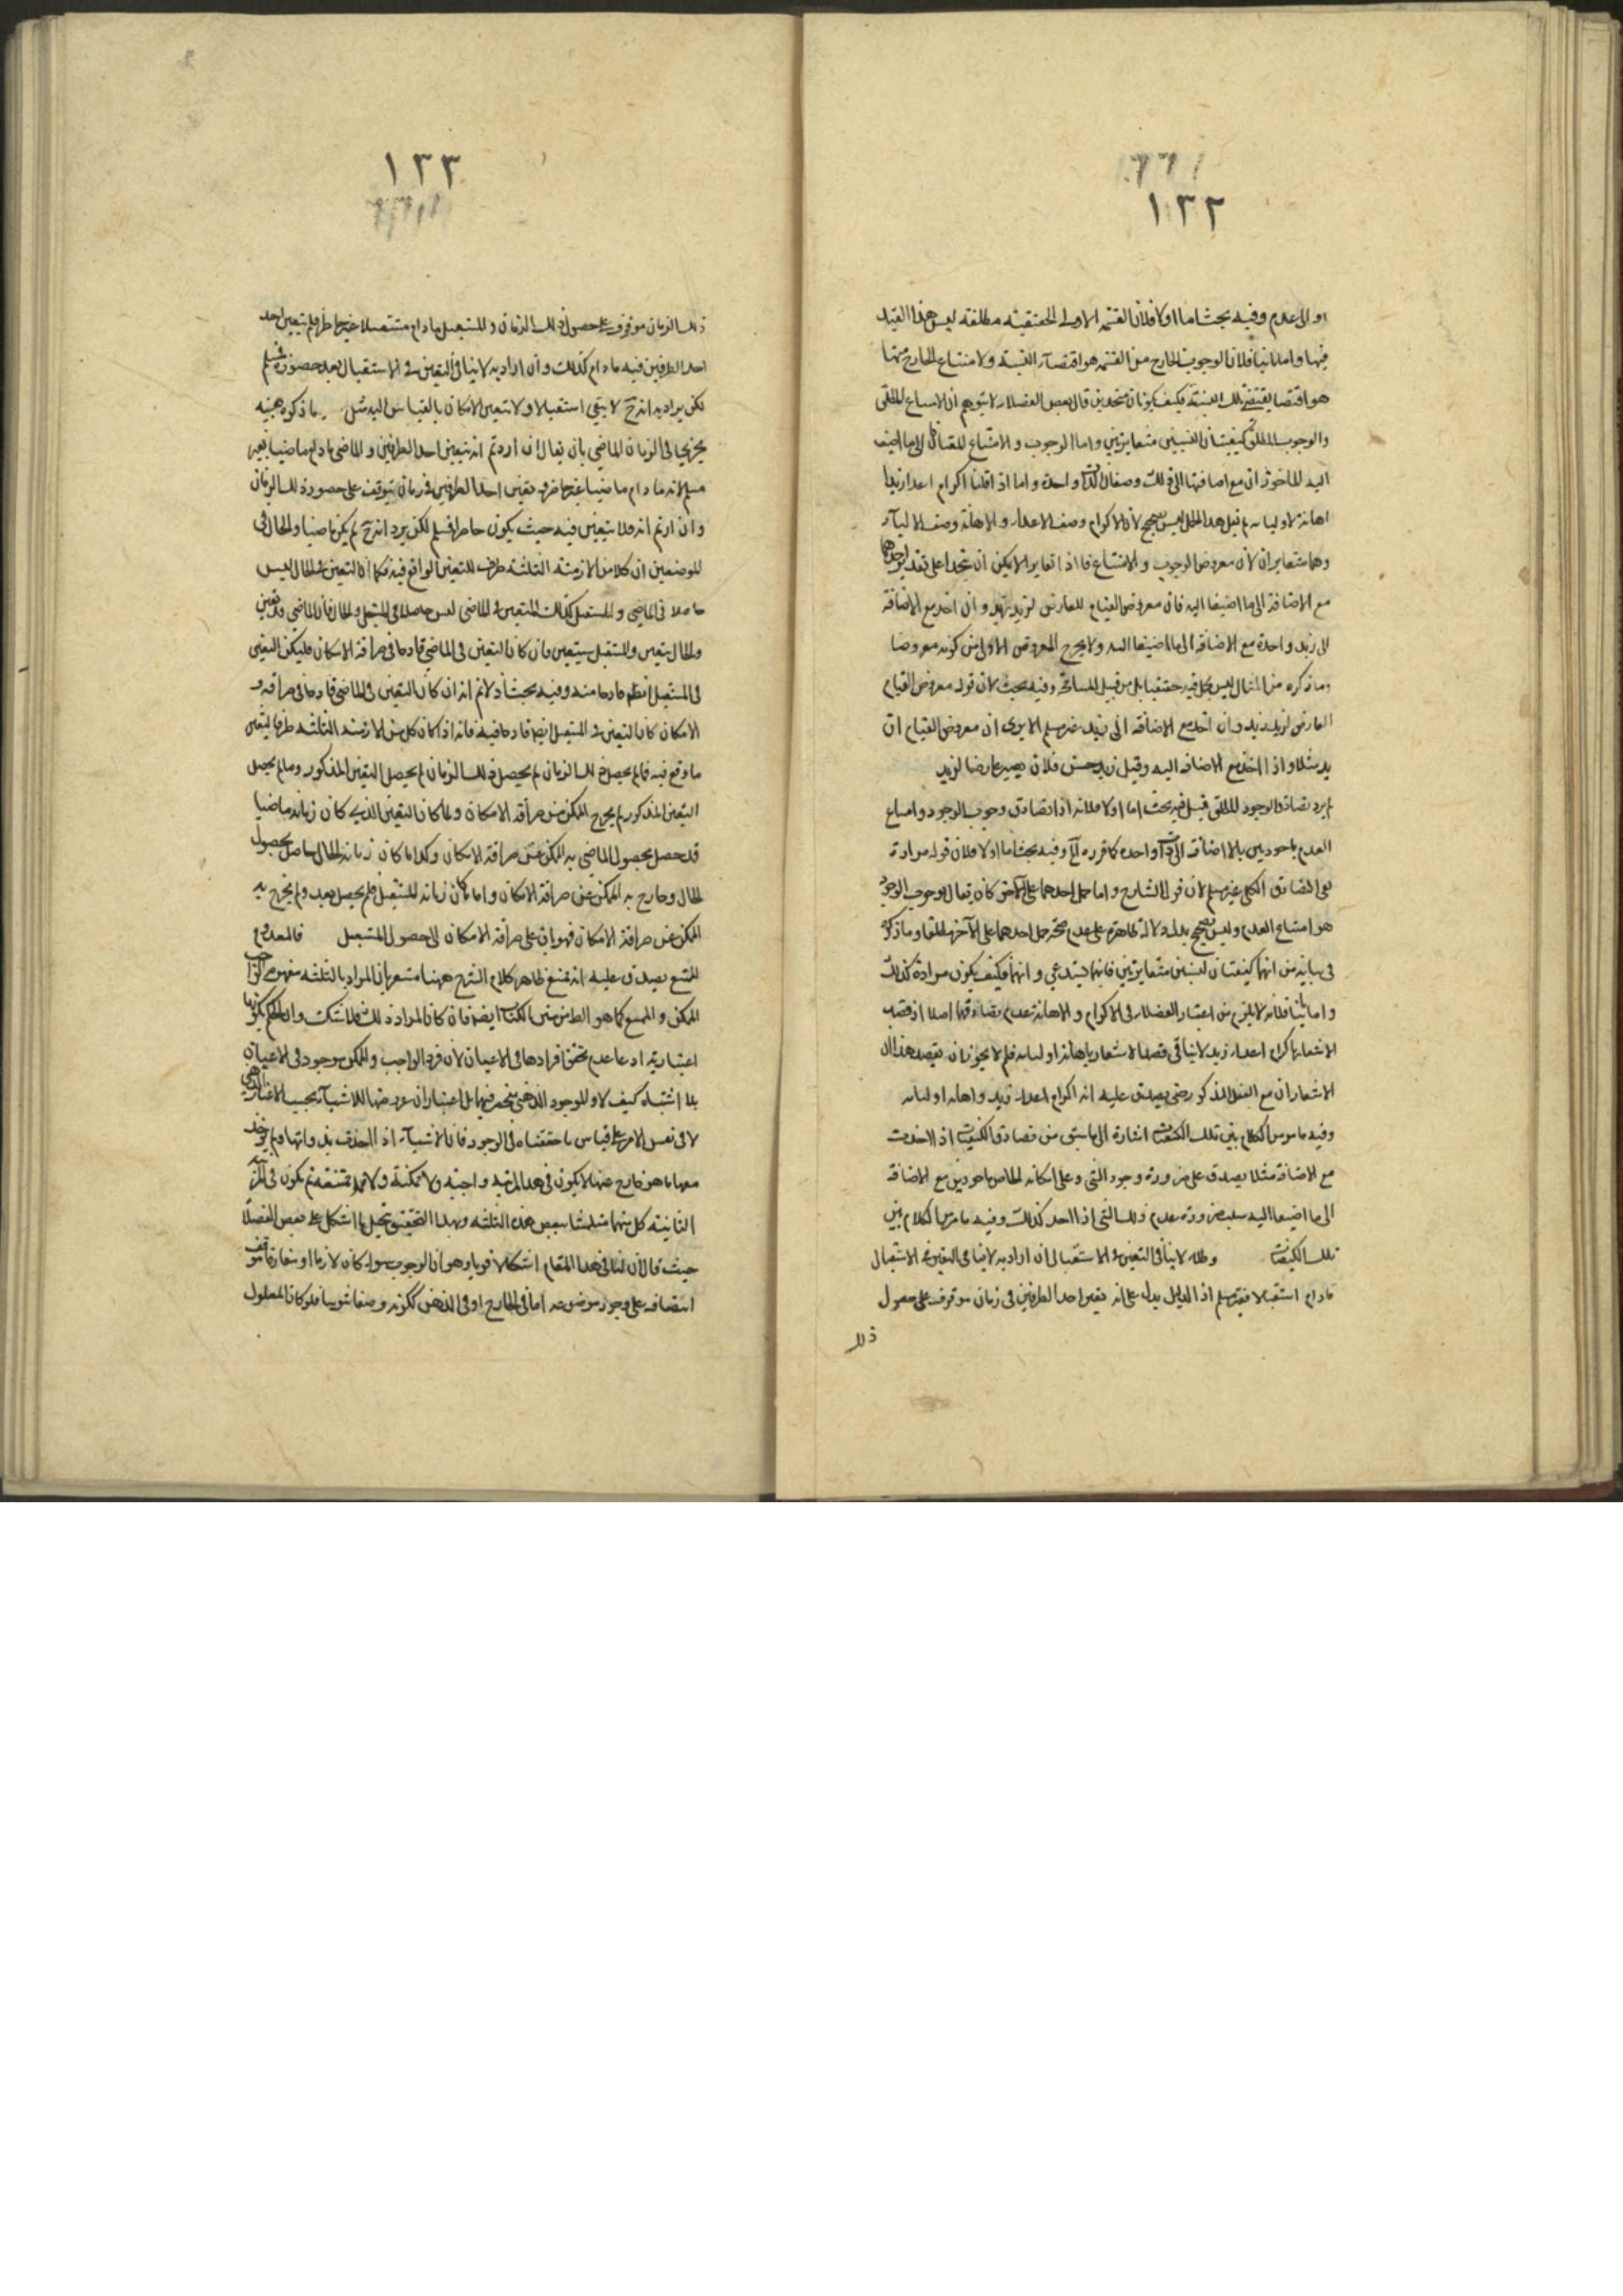 ١٣٢
او الى عدم وفيه بحث اما اولا فلان القسمة الاولى الحقيقية مطلقة ليس هذا القيد
فيها واما ثانيا فلان الوجوب الخارج من القسمة هو اقتضاء النسبة ولامتناع الخارج منها
هو اقتضا نقيض تلك النسبة فكيف يكونان متحدين قال بعض الفضلاء لا يتوهم ان الامتناع المطلق
والوجوب المطلق كيفيتان لنسبتين متغايرتين واما الوجوب والامتناع للقياس الى ما اضيف
اليه الماخوذان مع اضافتها الى ذلك وصفان لذات واحدة واما اذا قلنا اكرام اعداء زيد
اهانة لاوليائه ثم قيل هذا المثال ليس بصحيح لان الاكرام وصف الاعداء والاهانة وصف الاولياء
وهما متغايران لان معروض الوجوب والامتناع فاذا تغايرا لا يمكن ان يتحدا على تقدير اخذهما
مع الاضافة الى ما اضيفا اليه فان معروض القيام للعارض لزيد زيد وان اخذ مع الاضافة
الى زيد واحدة مع الاضافة الى ما اضيفا اليه ولا يخرج المعروض الاول من كونه معروضا
وما ذكره من المثال ليس بحمل حقيقيا بل من قبيل المسامحة وفيه بحث لان قوله معروض القيام
العارض لزيد زيد وان اخذ مع الاضافة الى زيد غير مسلم الا يرى ان معروض القيام
زيد مثلا واذا اخذ مع الاضافة اليه وقيل زيد حسن فلان يصير عارضا لزيد
لم يرد تصادق الوجود المطلق قيل فيه بحث اما اولا فلانه اذا تصادق وجوب الوجود وامتناع
العدم ماخوذين بالاضافة الى ذات واحدة كما قرره وفيه بحث اما اولا فلان قوله مراده
نفي التصادق الكلي غير مسلم لان قول الشارح واما حمل احدهما على الآخر كان يقال وجوب الوجود
هو امتناع العدم وليس بصحيح يدل دلالة ظاهرة على عدم صحة حمل احدهما على الآخر مطلقا وما ذكره
في بيانه من انهما كيفيتان لنسبتين متغايرتين فانهما يستدعي وانهما فكيف يكون مراده كذلك
واما ثانيا فلانه لا يلزم من اعتبار الفضلاء في الاكرام والاهانة عدم تصادقهما اصلا اذ قصد
الاشعار باكرام اعداء زيد لا ينافي قصد الاشعار باهانة اوليائه فلم لا يجوز ان يقصد هذا
الاشعاران مع الفعل المذكور حتى يصدق عليه انه اكرام اعداء زيد واهانة اوليائه
وفيه ما مر من الكلام بين تلك الكيفيات اشارة الى ما سبق من تصادق الكيفيات اذا اخذت
مع الاضافة مثلا يصدق على ضرورة وجود الشي وعلى امكانه الخاص ماخوذين مع الاضافة
الى ما اضيفا اليه سلب ضرورة عدم ذلك الشي اذا اخذ كذلك وفيه ما مر من الكلام بين
تلك الكيفيات وقوله لا ينافي التعين في الاستقبال ان اراد به لا ينافي التعين في الاستقبال
مادام استقبالا فغير مسلم اذ الدليل يدل على انه تعين احد الطرفين في زمان موقوف على حصول
ذلك
١٣٣
ذلك الزمان موقوف على حصول ذلك الزمان والمستقبل مادام مستقبلا غير حاضر فلم يتعين احد
احد الطرفين فيه مادام كذلك وان اراد به لا ينافي التعين في الاستقبال بعد حضوره فمسلم
لكن يراد به انه ح لا يبقى استقبالا ولا تتعين الامكان بالقياس اليه مثل ما ذكره بعينه
يجري في الزمان الماضي بان يقال ان اردتم انه يتعين احد الطرفين والماضي مادام ماضيا فغير
مسلم لانه مادام ماضيا غير حاضر فيه وتعين احد الطرفين في زمان يتوقف على حضور ذلك الزمان
وان اردتم انه فلا يتعين فيه حيث يكون حاضرا فمسلم لكن يرد انه ح لم يكن ماضيا والحال في
الموضعين ان كلا من الازمنة الثلثة ظرف للتعين الواقع فيه فكما ان التعين في الحال ليس
حاصلا في الماضي والمستقبل كذلك التعين في الماضي ليس حاصلا في المستقبل والحال فان الماضي قد تعين
والحال يتعين والمستقبل سيتعين فان كان التعين في الماضي قادحا في صرافة الامكان فليكن التعين
في المستقبل ايضا قادحا منه وفيه بحث اذ لا نم انه ان كان التعين في الماضي قادحا في صرافة
الامكان كان التعين في المستقبل ايضا قادحا فيه فانه اذا كان كل من الازمنة الثلثة ظرفا لتعين
ما وقع فيه فما لم يحصل ذلك الزمان لم يحصل في ذلك الزمان لم يحصل التعين المذكور وما لم يحصل
التعين المذكور لم يخرج الممكن من صرافة الامكان ولما كان التعين الذي كان زمانه ماضيا
قد حصل بحصول الماضي به الممكن عن صرافة الامكان وكذا ما كان زمانه الحال حاصل بحصول
الحال وخارج به الممكن عن صرافة الامكان واما ما كان زمانه المستقبل فلم يحصل بعد ولم يخرج به
الممكن عن صرافة الامكان فهو باق على صرافة الامكان الى حصول المستقبل فالمعدوم
الممتنع يصدق عليه انه ممتنع ظاهر كلام الشرح ههنا مشعر بان المراد بالثلثة مفهوم الواجب
الممكن والممتنع كما هو الظ من متن الكتاب ايضا فان كان المراد ذلك فلا شك وان الحكم بكونها
اعتبارية ادعا عدم تحقق افرادها في الاعيان لان فرد الواجب والممكن موجود في الاعيان
بلا اشتباه كيف لا والوجود الذهني منحصر فيهما بل اعتباران عروضها للاشياء بحسب الاعتبار الذهني
لا في نفس الامر على قياس ما حققناه في الوجود فان الاشياء اذا اخذت بذواتها ولم يوخذ
معها ما هو خارج عنها لا يكون في هذا المرتبة واجبة ولا ممكنة ولا ممتنعة ثم يكون في المرتبة
الثانية كل منها متلبسا ببعض هذه الثلثة وبهذا التحقيق ينحل ما اشكل على بعض الفضلاء
حيث قال ان لنا في هذا المقام اشكالا قويا وهو ان الوجوب سواء كان لازما او مفارقا يتوقف
اتصافه على وجود موضوعه اما في الخارج او في الذهن لكونه وصفا ثبوتيا فلو كان المعلول